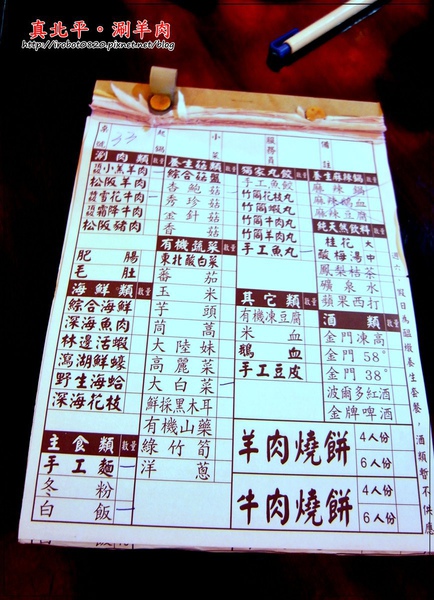 真北平·涮羊肉
http://irobot0820.pixnet.net/blog
桌號 33
起鍋
小菜
服務員
備註
涮肉類 數量
頂級小羔羊肉
松阪羊肉
頂級雪花牛肉
頂級霜降牛肉
松阪豬肉
肥腸
毛肚
海鮮類 數量
綜合海鮮
深海魚肉
林邊活蝦
瀉湖鮮蠔
野生海蛤
深海花枝
主食類 數量
手工麵
冬粉
白飯
養生菇類 數量
綜合菇盤
杏鮑菇
秀珍菇
金針菇
香菇
有機蔬菜 數量
東北酸白菜
番茄
玉米
芋頭
茼蒿
大陸妹
高麗菜
大白菜
鮮採黑木耳
有機山藥
綠竹筍
洋蔥
獨家丸餃 數量
手工魚餃
竹筒花枝丸
竹筒蝦丸
竹筒牛肉丸
竹筒羊肉丸
手工魚丸
其它類 數量
有機凍豆腐
米血
鴨血
手工豆皮
養生麻辣鍋 數量
麻辣鍋
麻辣鴨血
麻辣豆腐
純天然飲料
桂花 大
酸梅湯 中
鳳梨桔茶
礦泉水
蘋果西打
酒類 數量
金門凍高
金門58°
金門38°
波爾多紅酒
金牌啤酒
羊肉燒餅 4人份
6人份
牛肉燒餅 4人份
6人份
假日為溫燉養生套餐，酒類暫不供應